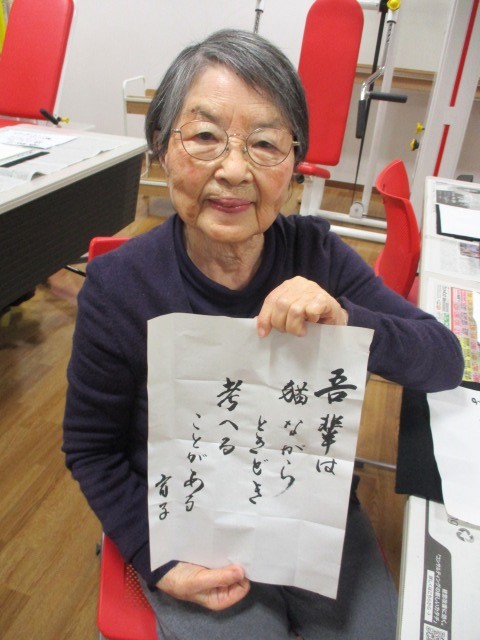 吾輩は
猫ながら
ときどき
考へる
ことがある
育子